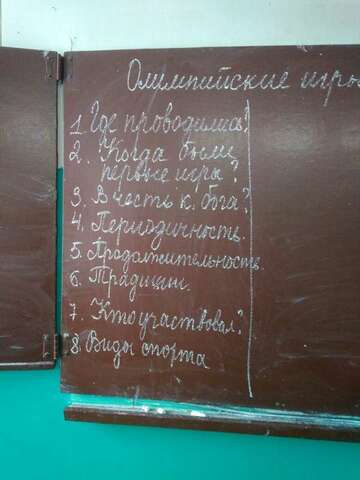 Олимпийские игры
1. Где проводились?
2. Когда были
первые игры?
3. В честь к. бога?
4. Периодичность.
5. Продолжительность.
6. Традиции.
7. Кто участвовал?
8. Виды спорта